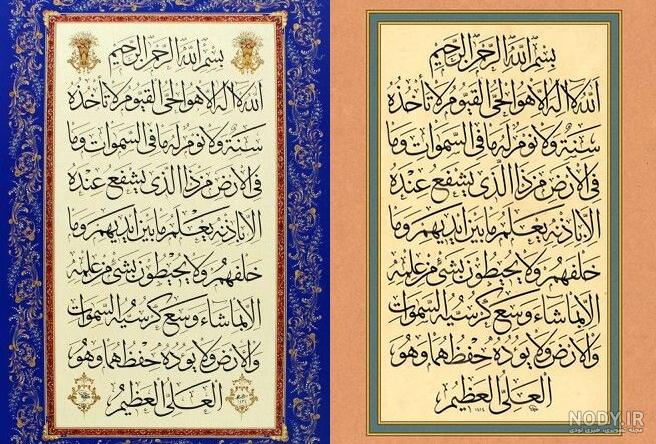 بسم الله الرحمن الرحيم
الله لا اله الا هو الحي القيوم لا تأخذه
سنة ولا نوم له ما في السموات وما
في الارض من ذا الذي يشفع عنده
الا باذنه يعلم ما بين ايديهم وما
خلفهم ولا يحيطون بشئ من علمه
الا بما شاء وسع كرسيه السموات
والارض ولا يؤده حفظهما وهو
العلي العظيم
بسم الله الرحمن الرحيم
الله لا اله الا هو الحي القيوم لا تأخذه
سنة ولا نوم له ما في السموات وما
في الارض من ذا الذي يشفع عنده
الا باذنه يعلم ما بين ايديهم وما
خلفهم ولا يحيطون بشئ من علمه
الا بما شاء وسع كرسيه السموات
والارض ولا يؤده حفظهما وهو
العلي العظيم
NODY.IR
مجله تصویری، خبری نودی